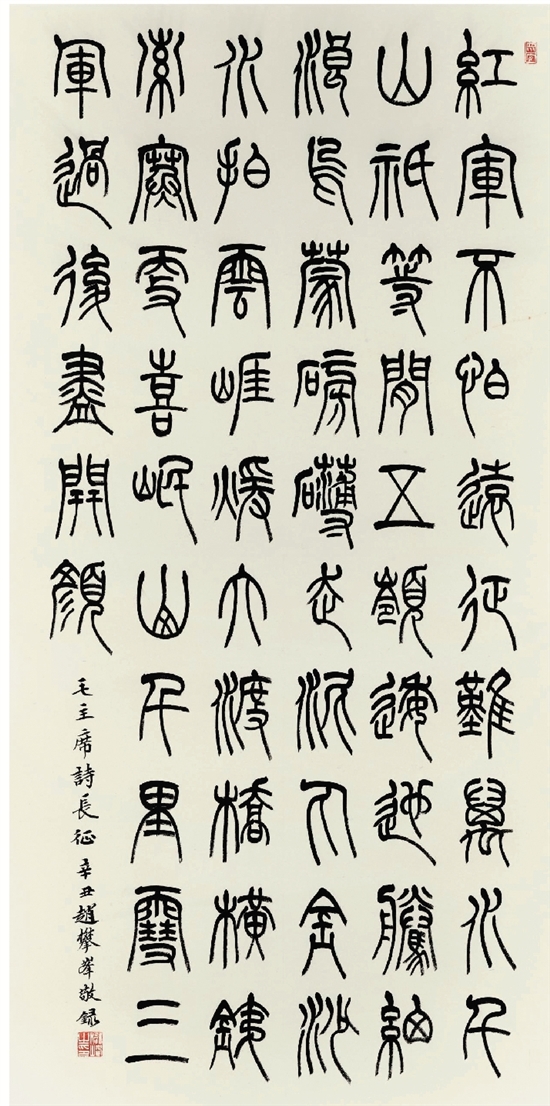 紅軍不怕遠征難萬水千
山祇等閒五嶺逶迤騰細
浪烏蒙磅礴走泥丸金沙
水拍雲崖煖大渡橋橫鐵
索寒更喜岷山千里雪三
軍過後盡開顏
毛主席詩長征 辛丑趙攀峯敬録